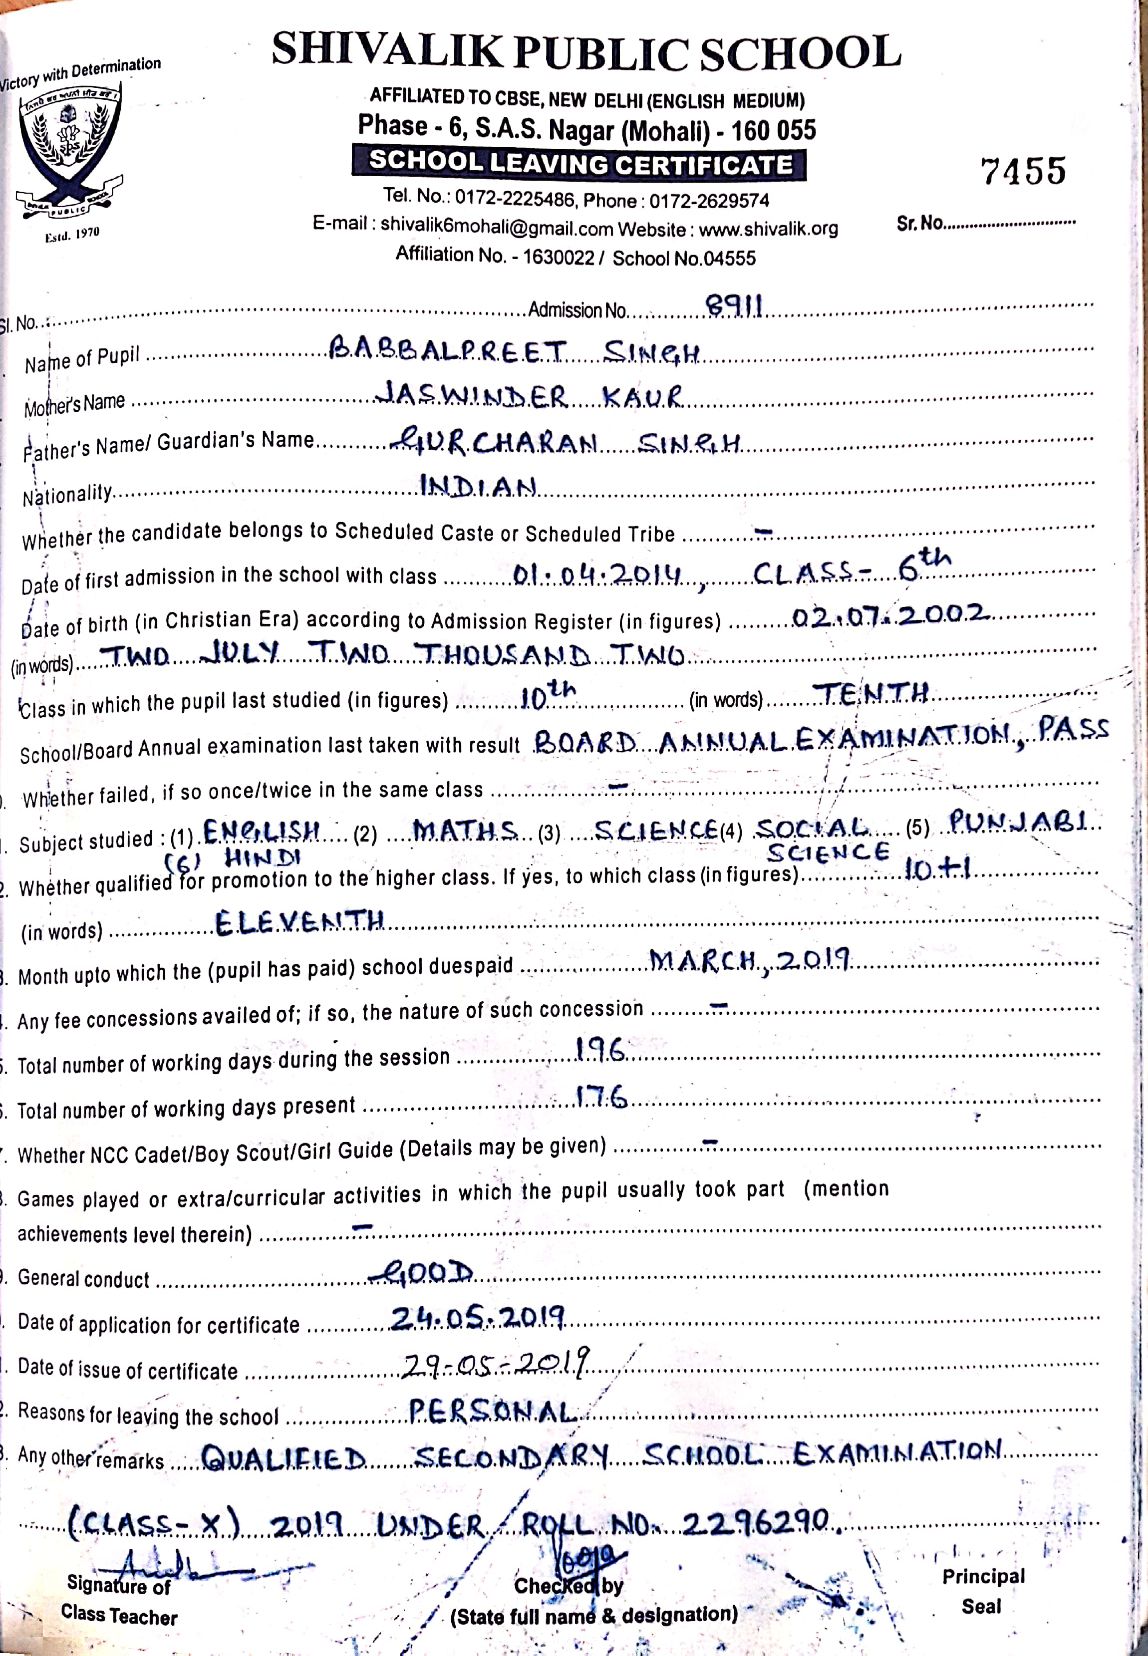 Victory with Determination
SHIVALIK PUBLIC SCHOOL
AFFILIATED TO CBSE, NEW DELHI (ENGLISH MEDIUM)
Phase - 6, S.A.S. Nagar (Mohali) - 160 055
SCHOOL LEAVING CERTIFICATE
7455
Tel. No.: 0172-2225486, Phone : 0172-2629574
E-mail : shivalik6mohali@gmail.com Website : www.shivalik.org
Sr. No.
SPS
PUBLIC
Estd. 1970
Affiliation No. - 1630022 / School No.04555
Sl. No. Admission No. 8911
Name of Pupil BABBALPREET SINGH
Mother's Name JASWINDER KAUR
Father's Name/ Guardian's Name GURCHARAN SINGH
Nationality INDIAN
Whether the candidate belongs to Scheduled Caste or Scheduled Tribe –
Date of first admission in the school with class 01.04.2014, CLASS- 6th
Date of birth (in Christian Era) according to Admission Register (in figures) 02.07.2002
(in words) TWO JULY TWO THOUSAND TWO
Class in which the pupil last studied (in figures) 10th (in words) TENTH
School/Board Annual examination last taken with result BOARD ANNUAL EXAMINATION, PASS
Whether failed, if so once/twice in the same class –
Subject studied : (1) ENGLISH (2) MATHS (3) SCIENCE (4) SOCIAL (5) PUNJABI
(6) HINDI SCIENCE
Whether qualified for promotion to the higher class. If yes, to which class (in figures) 10+1
(in words) ELEVENTH
Month upto which the (pupil has paid) school duespaid MARCH, 2019
Any fee concessions availed of; if so, the nature of such concession –
Total number of working days during the session 196
Total number of working days present 176
Whether NCC Cadet/Boy Scout/Girl Guide (Details may be given) –
Games played or extra/curricular activities in which the pupil usually took part (mention
achievements level therein) –
General conduct GOOD
Date of application for certificate 24.05.2019
Date of issue of certificate 29-05-2019
Reasons for leaving the school PERSONAL
Any other remarks QUALIFIED SECONDARY SCHOOL EXAMINATION
(CLASS-X) 2019 UNDER ROLL NO. 2296290.
Signature of
Class Teacher
Pooja
Checked by
(State full name & designation)
Principal
Seal